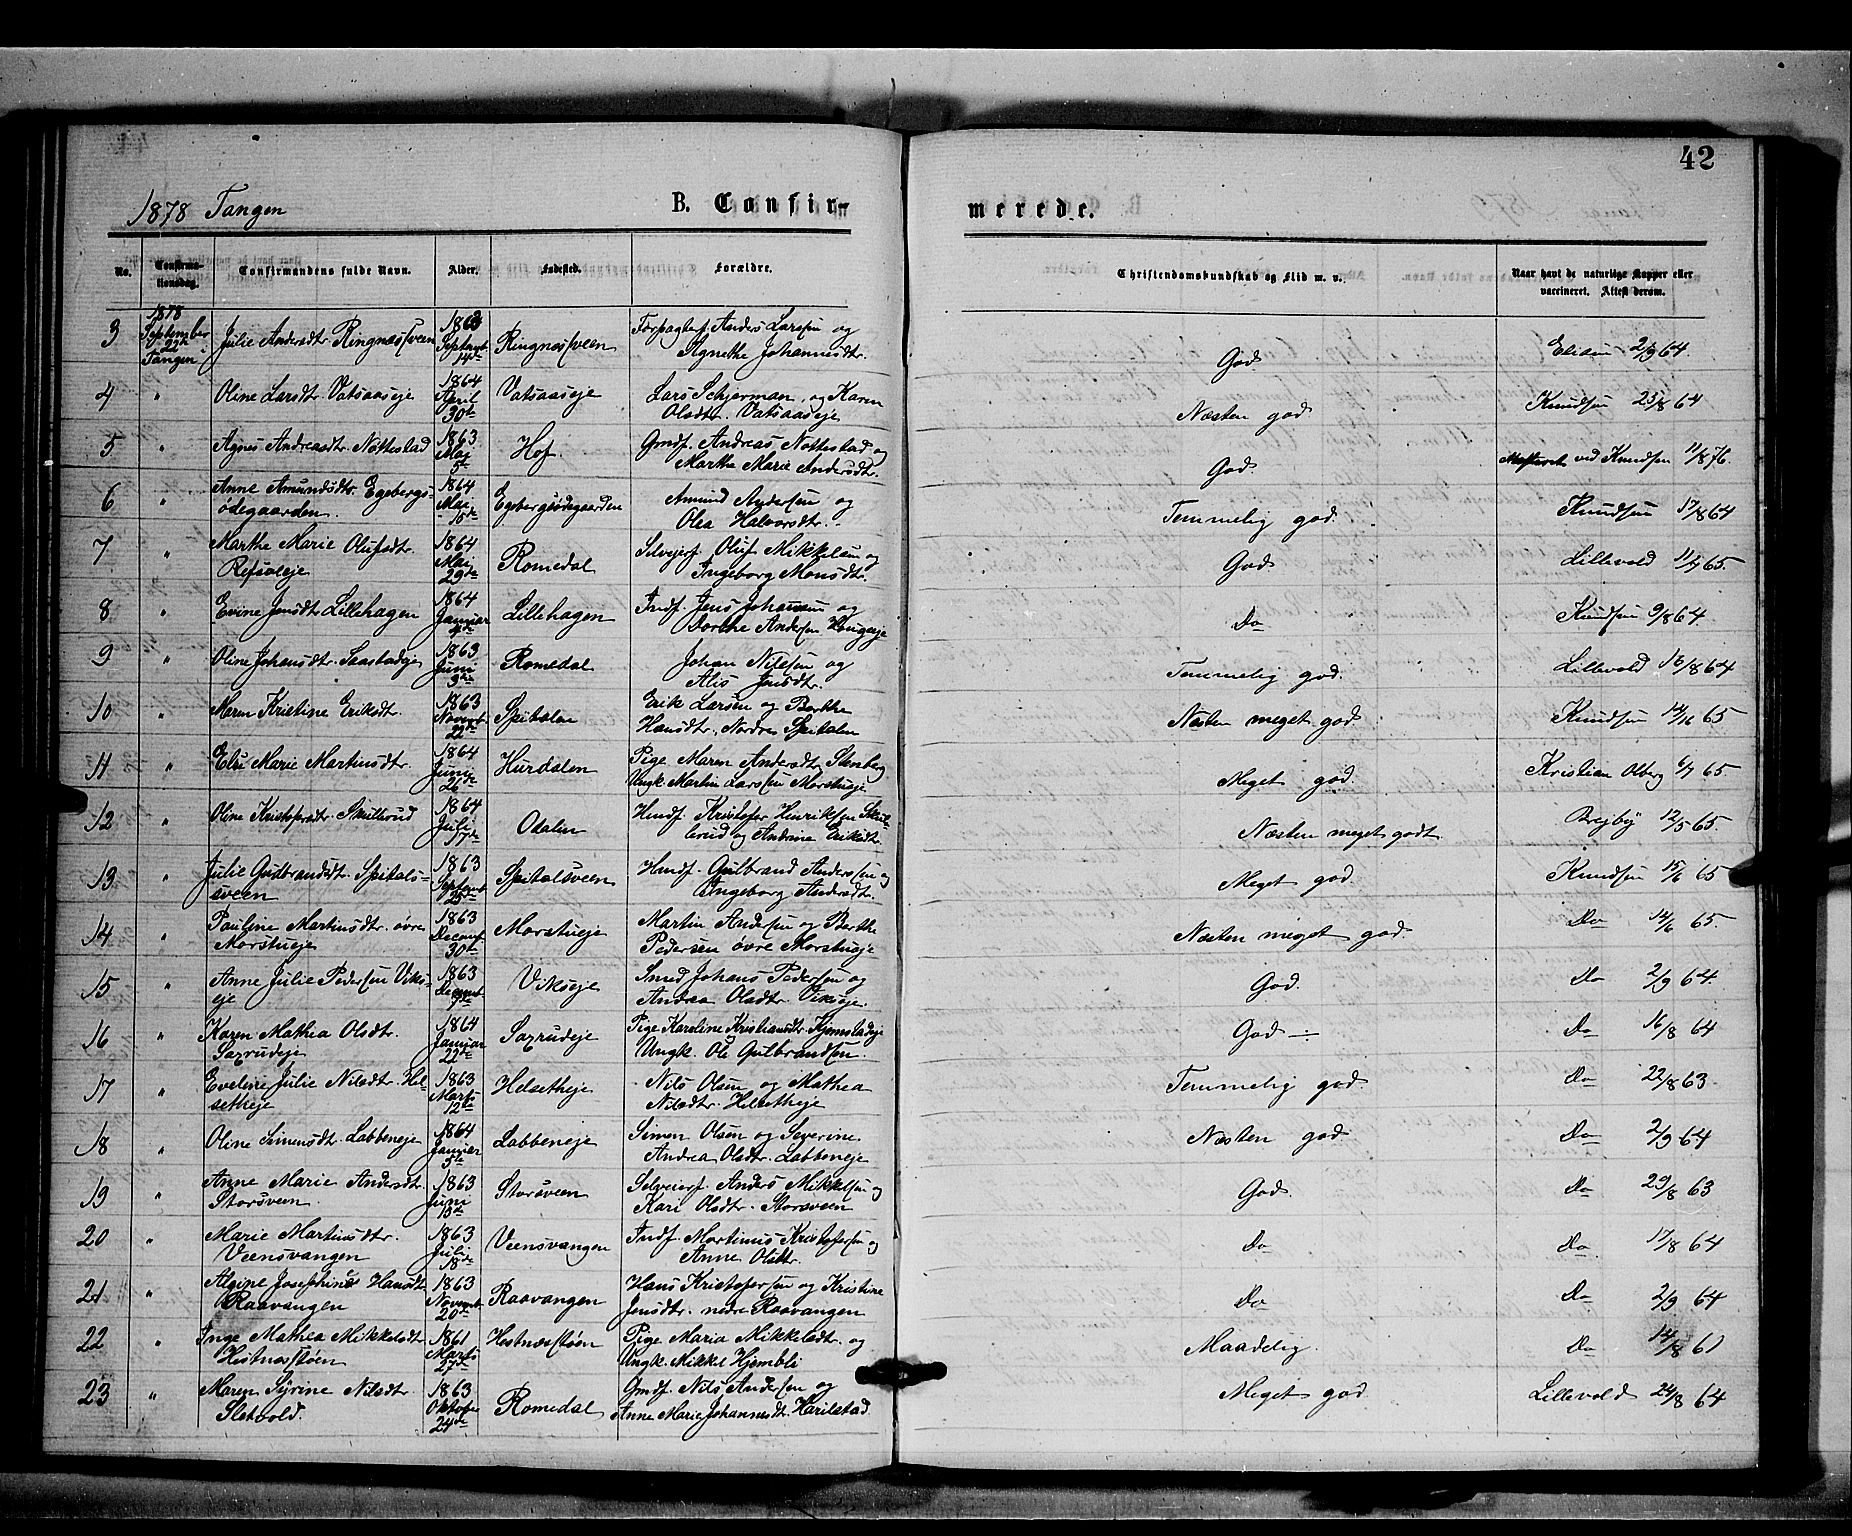 42
1878 Tangen B. Confirmerede.
No. Confirmationsdag. Confirmandens fulde Navn. Alder. Fødested. Forældre. Christendomskundskab og Flid m. v. Naar havt de naturlige Kopper eller vaccineret. Attest derom.
3 1878 September 22de Tangen Julie Andersdtr Ringnæssveen 1863 Septembr 14de Ringnæssveen Forpagter Anders Larssen og Agnethe Johannesdtr. God. 2/9 64.
4 " Oline Larsdtr. Vatsaaseje 1864 April 30te Vatsaaseje Lars Schjerman og Karen Olsdtr. Vatsaaseje Næsten god. Knudsen 25/8 64
5 " Agnes Andreasdtr. Nøttestad 1863 Maj 5te Hof. Gmdf. Andreas Nøttestad og Marthe Marie Andersdtr. God. ved Knudsen 11/8 76.
6 " Anne Amundsdtr. Egebergsødegaarden. 1864 Mai 15de Egebergsødegaarden Amund Andersen og Olea Halvorsdtr. Temmelig god. Knudsen 17/8 64
7 " Marthe Marie Olufsdtr. Refsaleje 1864 Mai 29de Romedal Selvejerf. Oluf Mikkelsen og Ingeborg Monsdtr. God. Lillevold 11/7 65.
8 " Evine Jensdtr. Lillehagen 1864 Januar 4de Lillehagen Indf. Jens Johansen og Dorthe Andersen Haugeje Do Knudsen 9/8 64.
9 " Oline Johansdtr. Saastadeje 1863 Juni 3de Romedal Johan Nilssen og Alis Jensdtr. Temmelig god. Lillevold 16/8 64
10 " Maren Kristine Eriksdtr. 1863 Novembr 22de Spitalen Erik Larsen og Berthe Hansdtr. Nordre Spitalen Næsten meget god. Knudsen 14/6 65
11 " Elise Marie Martinsdtr. 1864 Juni 26de Hurdalen Pige Maren Andersdtr Stenberg Ungk. Martin Larssen Morstueje Meget god. Kristian Olberg 6/7 65.
12 " Oline Kristofersdtr. Skillerud 1864 Juli 17de Odalen Husmf. Kristofer Henriksen Skillerud og Andrine Eriksdtr. Næsten meget godt. Brejby 12/5 65.
13 " Julie Gudbrandsdtr. Spitalssveen 1863 Septembr 25de Spitalsveen Husmf. Gulbrand Anderssen og Ingeborg Andersdtr. Meget god. Knudsen 15/6 65
14 " Pauline Martinsdtr. øvre Morstueje 1863 Decembr 30te Morstueje Martin Andersen og Berthe Pedersen øvre Morstueje Næsten meget god. Do 14/6 65.
15 " Anne Julie Pedersen Vikseje 1863 Decembr Vikseje Smed Johans Pedersen og Andrea Olsdtr. Vikseje. God. Do 2/9 64.
16 " Karen Mathea Olsdtr. Saxrudeje 1864 Januar 22de Saxrudeje Pige Karoline Kristiansdtr. Kjemstadeje Ungk. Ole Gulbrandsen. God — Do 16/8 64
17 " Eveline Julie Nilsdtr. Helsetheje 1863 Marts 12te Helsetheje Nils Olsen og Mathea Nilsdtr. Helsetheje Temmelig god. Do 22/8 63.
18 " Oline Simensdtr. Labbeneje 1864 Januar 5te Labbeneje Simen Olsen og Severine Andrea Olsdtr. Labbeneje Næsten god. Do 2/9 64
19 " Anne Marie Andersdtr. Storsveen. 1863 Juni 13de Storsveen Selveierf. Anders Mikkelsen og Kari Olsdtr. Storsveen God. Do 29/8 63
20 " Marie Martinusdtr. Veensvangen 1863 Juli 18de Veensvangen Indf. Martinus Kristofersen og Anne Olsdtr. Do Do. 17/8 64
21 " Algine Josephine Hansdtr. Raavangen 1863 Novembr 20de Raavangen Hans Kristofersen og Kristine Jensdtr. nedre Raavangen Do Do 2/9 64
22 " Inge Mathea Mikkelsdtr Hestnæsstøen 1861 Marts 27de Hestnæsstøen Pige Maria Mikkelsdtr. og Ungk. Mikkel Hjembli Maadelig. Do 14/8 61
23 " Maren Syrine Nilsdtr Sletvold. 1863 Oktober 24de Romedal Gmdf. Nils Andersen og Anne Marie Johannesdtr. Harilstad Meget god. Lillevold 24/8 64